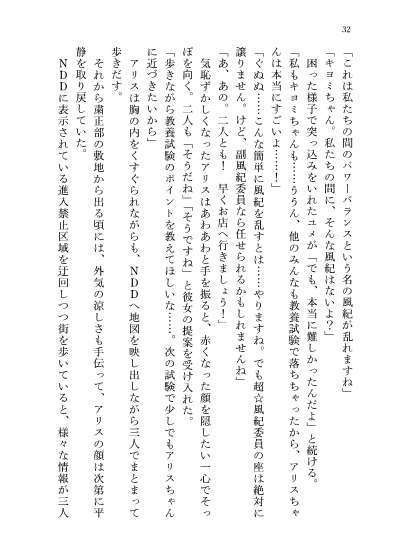 32
「これは私たちの間のパワーバランスという名の風紀が乱れますね」
「キヨミちゃん。私たちの間に、そんな風紀はないよ？」
困った様子で突っ込みをいれたユメが「でも、本当に難しかったんだよ」と続ける。
「私もキヨミちゃんも……ううん、他のみんなも教養試験で落ちちゃったから、アリスちゃ
んは本当にすごいよ……！」
「ぐぬぬ……こんな簡単に風紀を乱すとは……やりますね。でも超☆風紀委員の座は絶対に
譲りません。けど、副風紀委員なら任せられるかもしれませんね」
「あ、あの。二人とも！　早くお店へ行きましょう！」
気恥ずかしくなったアリスはあわあわと手を振ると、赤くなった顔を隠したい一心でそっ
ぽを向く。二人も「そうだね」「そうですね」と彼女の提案を受け入れた。
「歩きながら教養試験のポイントを教えてほしいな……。次の試験で少しでもアリスちゃん
に近づきたいから」
アリスは胸の内をくすぐられながらも、ＮＤＤへ地図を映し出しながら三人でまとまって
歩きだす。
それから粛正部の敷地から出る頃には、外気の涼しさも手伝って、アリスの顔は次第に平
静を取り戻していた。
ＮＤＤに表示されている進入禁止区域を迂回しつつ街を歩いていると、様々な情報が三人